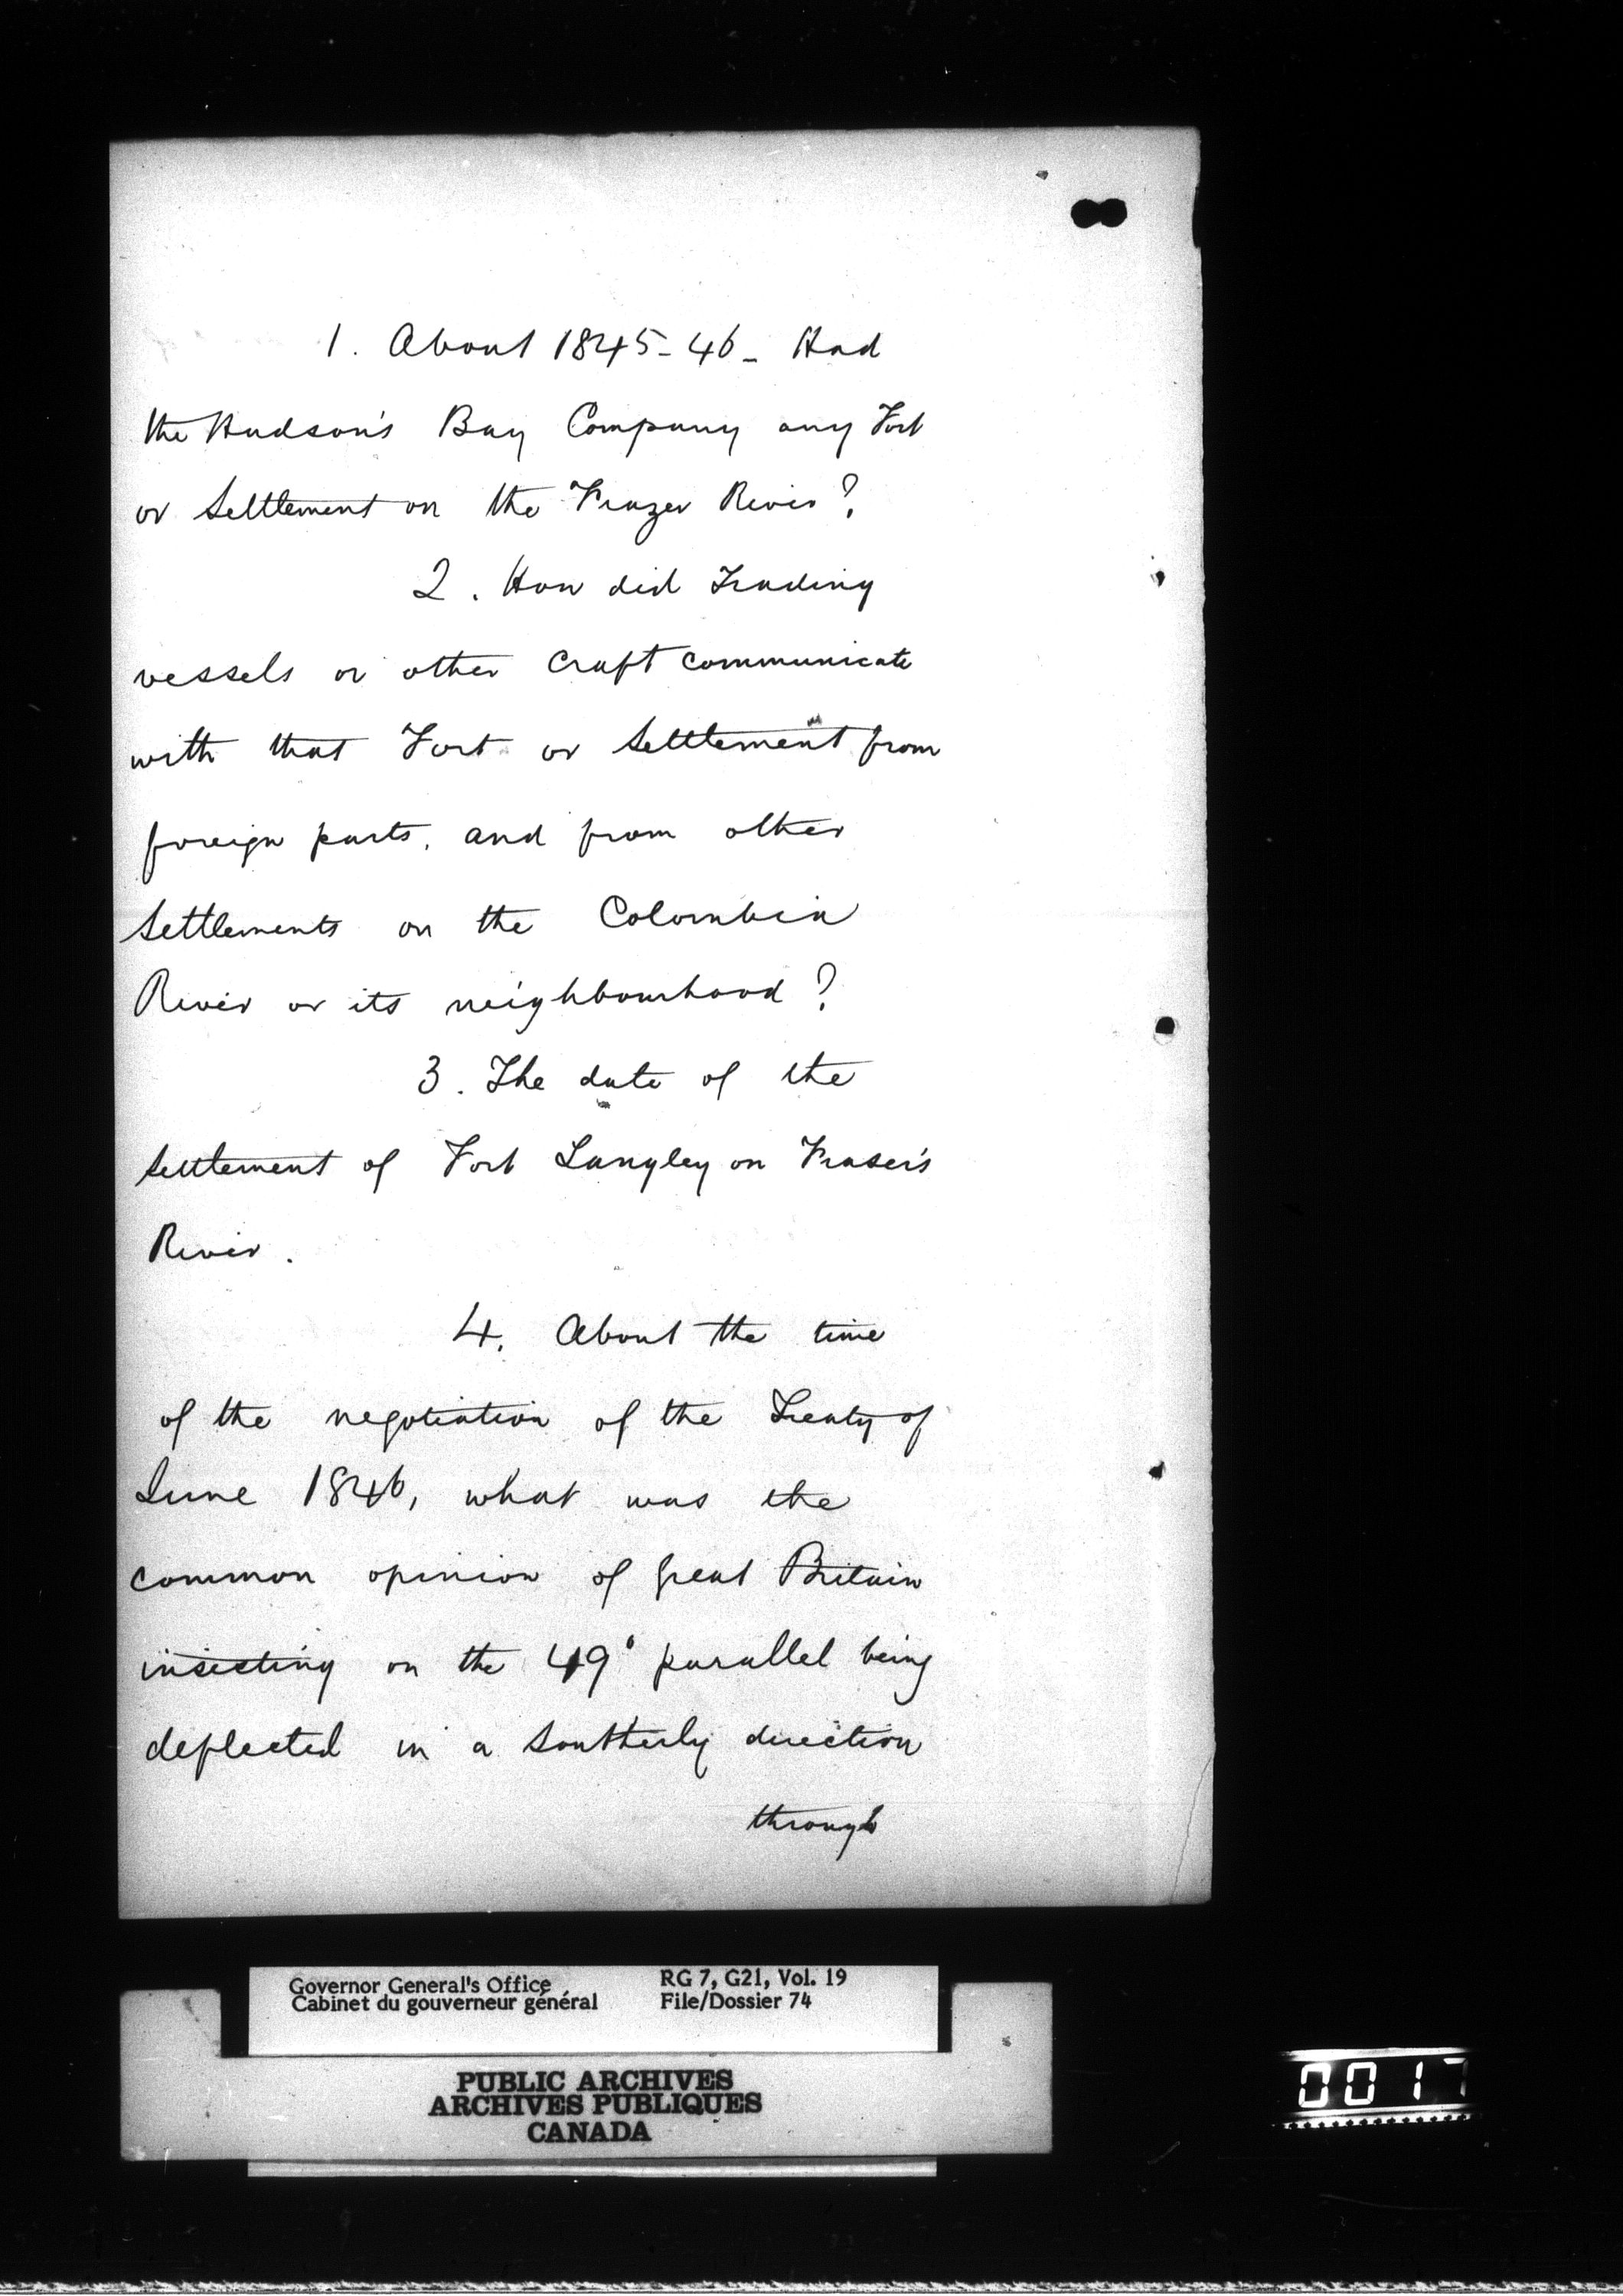 1. About 1845-46_ Had
the Hudson's Bay Company any Fort
or Settlement on the Frazer River?
2. How did Trading
vessels or other craft communicate
with that Fort or Settlement from
foreign parts, and from other
Settlements on the Colombia
River or its neighbourhood?
3. The date of the
settlement of Fort Langley on Fraser's
River.
4. About the time
of the negotiation of the Treaty of
June 1846, what was the
common opinion of Great Britain
insisting on the 49° parallel being
deflected in a Southerly direction
through
Governor General's Office
Cabinet du gouverneur général
RG 7, G21, Vol. 19
File/Dossier 74
PUBLIC ARCHIVES
ARCHIVES PUBLIQUES
CANADA
0017